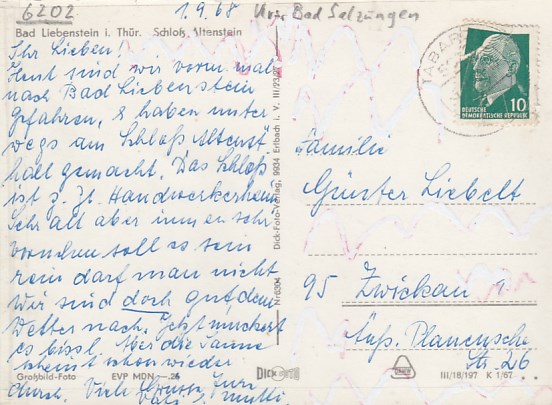 6202
1.9.68
Kr. Bad Salzungen
Bad Liebenstein i. Thür. Schloß Altenstein
Ihr Lieben!
Heut sind wir vorm. mal
nach Bad Liebenstein
gefahren, & haben unter
wegs am Schloß Altenst.
halt gemacht. Das Schloß
ist z. Zt. Handwerkerheim
Sehr alt aber innen sehr
vornehm soll es sein
rein darf man nicht.
Wir sind doch gut dem
Wetter nach. Jetzt muckert
es bissl. Aber die Sonne
scheint schon wieder
durch. Viele Grüsse Eure
Vati & Mutti
Großbild-Foto EVP MDN —.25
Dick-Foto-Verlag, 9934 Erlbach i. V. III/23/21
Nr. 6304
DICK
TABARZ
DEUTSCHE
DEMOKRATISCHE REPUBLIK
10
Familie
Günter Liebelt
95 Zwickau
Äuß. Plauensche
Str. 26
III/18/197 K 1/67